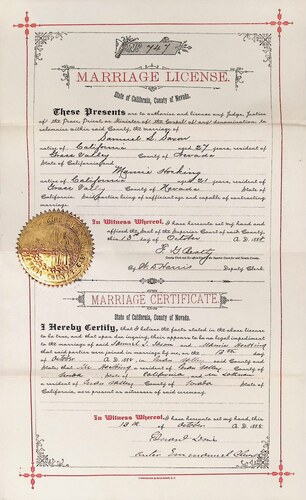 No. 747
MARRIAGE LICENSE.
State of California, County of Nevada.
These Presents are to authorize and license any Judge, Justice
of the Peace, Priest, or Minister of the Gospel of any denomination, to
solemnize within said County, the marriage of
Samuel S. Saxon
native of California aged 27 years, resident of
Grass Valley County of Nevada
State of California and
Mamie Hosking
native of California aged 21 years, resident of
Grass Valley County of Nevada State of
California. Said parties being of sufficient age and capable of contracting
marriage.
In Witness Whereof, I have hereunto set my hand and
affixed the Seal of the Superior Court of said County,
this 13 day of October A. D. 188
F. G. Beatty
By Harris Deputy Clerk
MARRIAGE CERTIFICATE
State of California, County of Nevada.
I Hereby Certify, that I believe the facts stated in the above license
to be true, and that upon due inquiry, there appears to be no legal impediment
to the marriage of said Samuel S. Saxon and Mamie Hosking
that said parties were joined in marriage by me, on the 13th day
of October A. D. 188 in Grass Valley County and
State; that Hosking a resident of Grass Valley County of
Nevada State of California, and
a resident of Grass Valley County of Nevada State of
California, were present as witnesses of said ceremony.
In Witness Whereof, I have hereunto set my hand, this
13th of October A. D. 188
Emmanuel